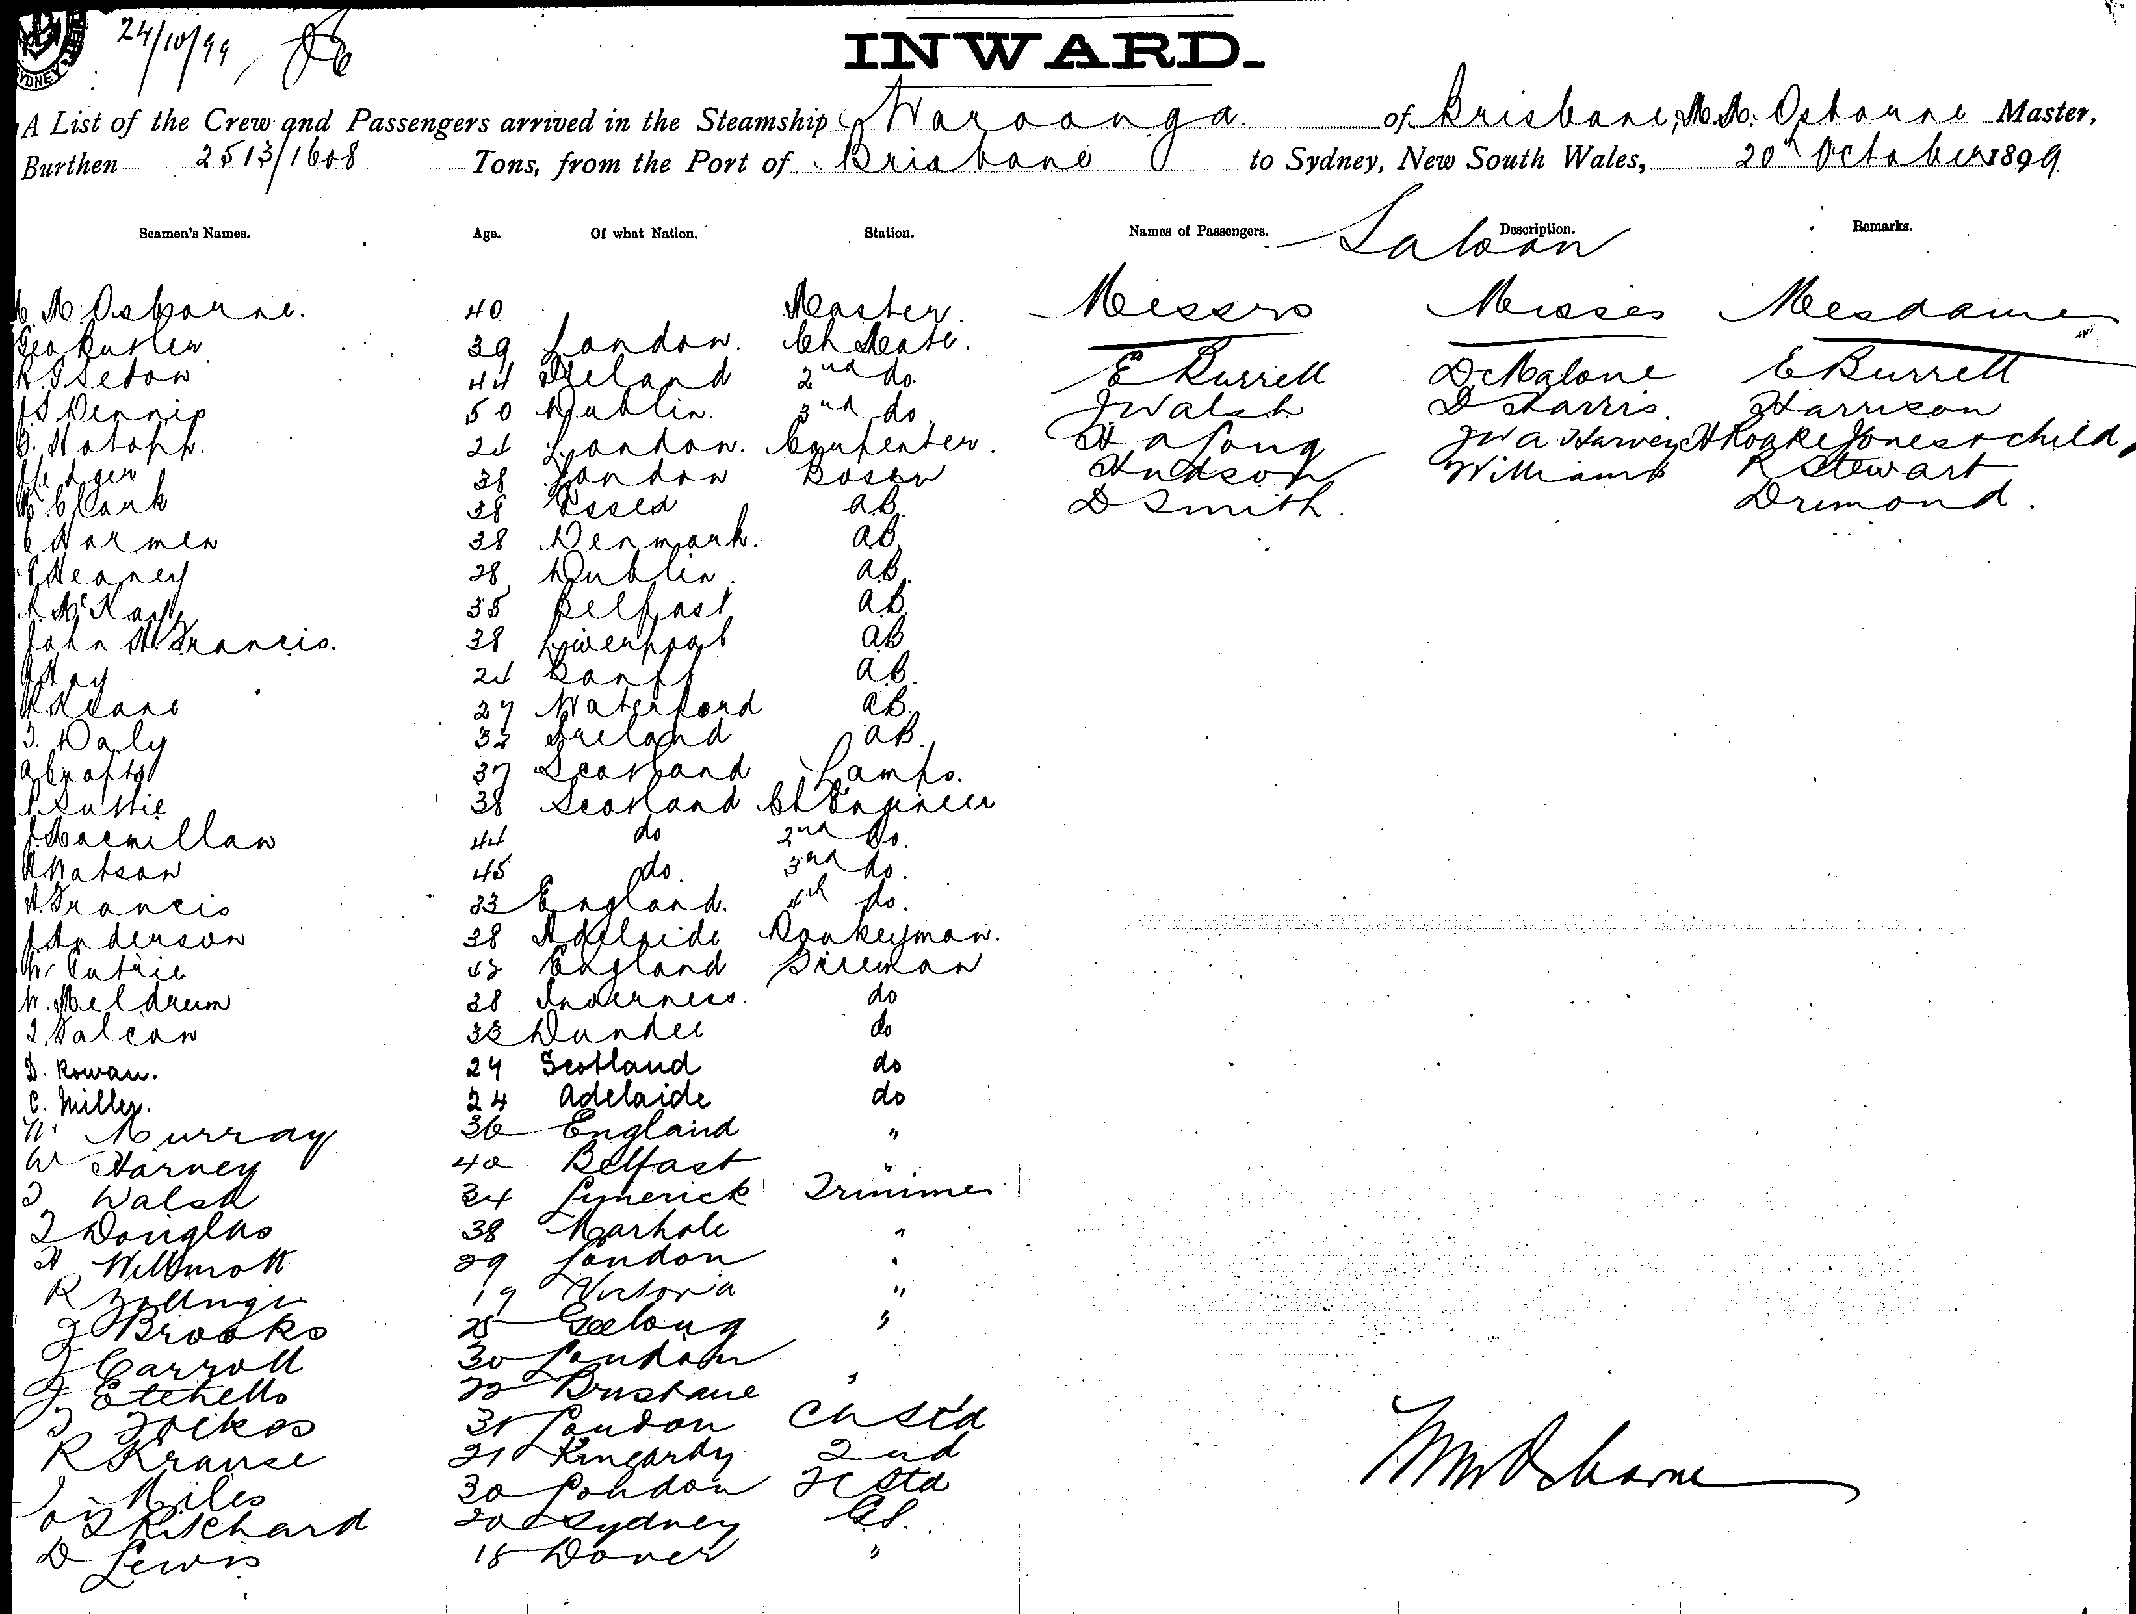 SYDNEY
24/10/99
INWARD.
A List of the Crew and Passengers arrived in the Steamship Waroonga of Brisbane, M. M. Osborne Master,
Burthen 2513/1608 Tons, from the Port of Brisbane to Sydney, New South Wales, 20th October 1899
Seamen's Names. Age. Of what Nation. Station. Names of Passengers. Description. Remarks.
Saloon
M Osborne. 40 Master. Messrs Misses Mesdames
Geo Butler 39 London. Ch Mate. E Burrell D McAlone E Burrell
44 Ireland 2nd do. J Walsh D Harris. Harrison
J S Dennis 50 Dublin. 3rd do H A Long J W A Harvey H Rooke Jones & child
24 London. Carpenter. Hudson Williams R Stewart
38 London Bosun D Smith. Drimond.
Clark 38 Essed AB.
C Harmen 38 Denmark. AB
Heaney 28 Dublin. AB.
McKay 35 Belfast AB
John H Francis. 38 Liverpool AB
24 Banff AB.
Keane 27 Waterford AB.
T. Daly 32 Ireland AB.
A Crafts 37 Scotland Lamps.
Suttie 38 Scotland Ch Engineer
J Macmillan 44 do 2nd do.
Watson 45 do. 3rd do.
H. Francis 33 England. 4th do.
J Anderson 38 Adelaide Donkeyman.
W. Cutrie 42 England Fireman
W. Meldrum 38 Inverness. do
T. Falcon 33 Dundee do
D. Rowan. 24 Scotland do
C. Miller. 24 Adelaide do
W. Murray 36 England "
W Harvey 40 Belfast "
T Walsh 34 Limerick Trimmer
T Douglas 38 Marhole "
H Willmott 29 London "
R Zollinger 19 Victoria "
J Brooks 25 Geelong "
J Carroll 30 London
J. Etchells 22 Brisbane "
31 London Ch Std
R Krause 21 2nd
Miles 30 London FC Std
Pritchard 20 Sydney GS.
D Lewis 18 Dover "
Wm Osborne